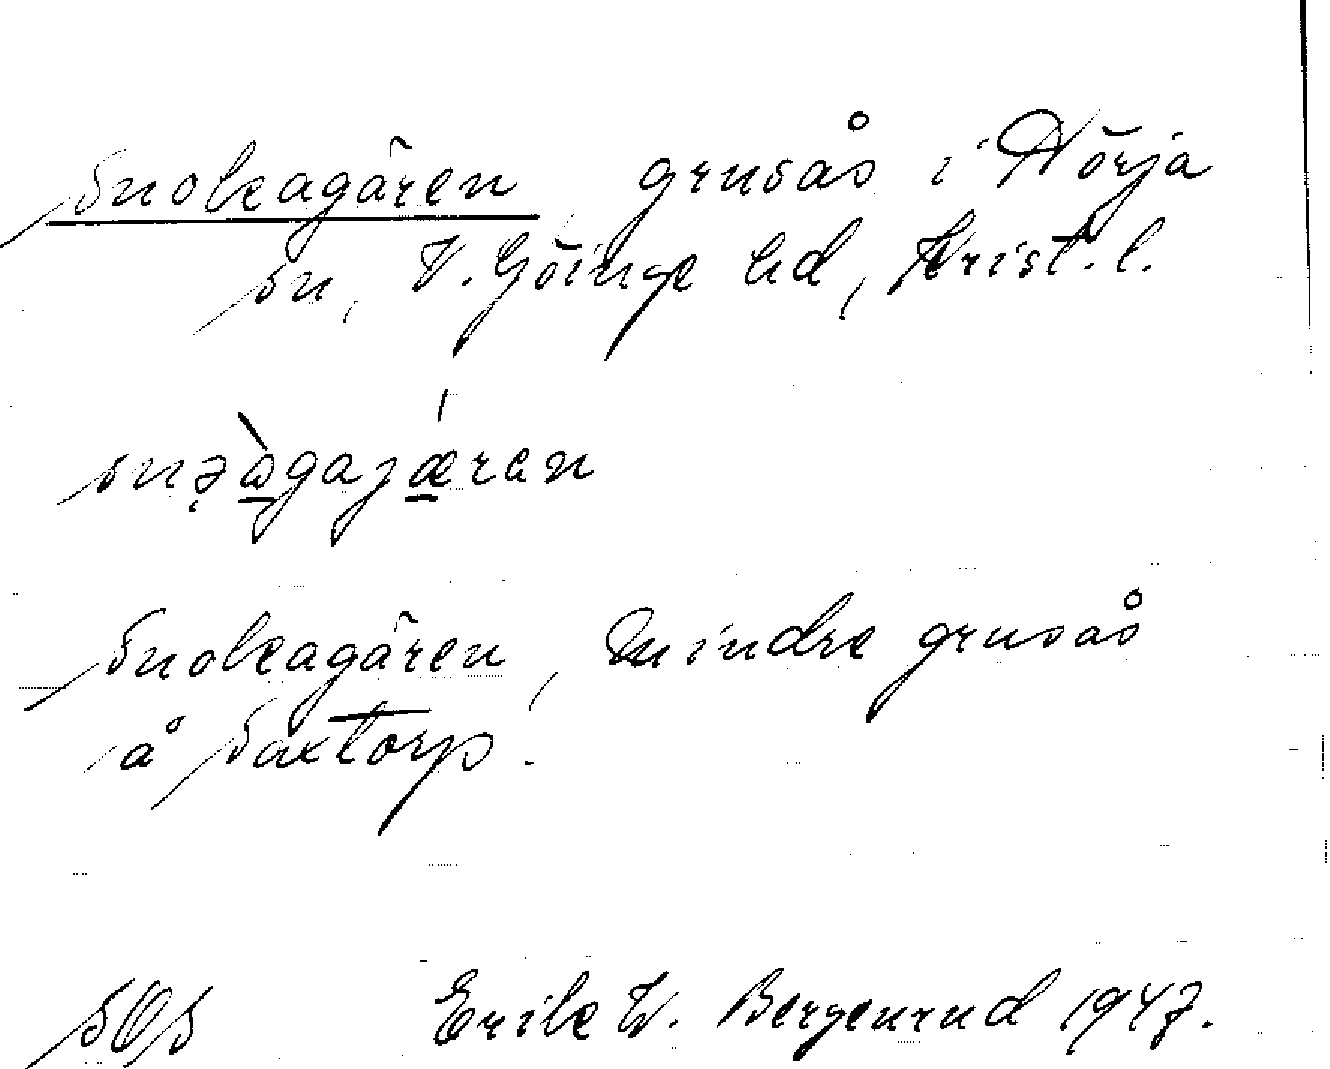 Snokagären grusås i Nörja
sn, V. Göinge hd, Krist. l.
snə̣ὰgajǽran
Snokagären, mindre grusås
å Saxtorp.
SOS Erik W. Bergenrud 1947.